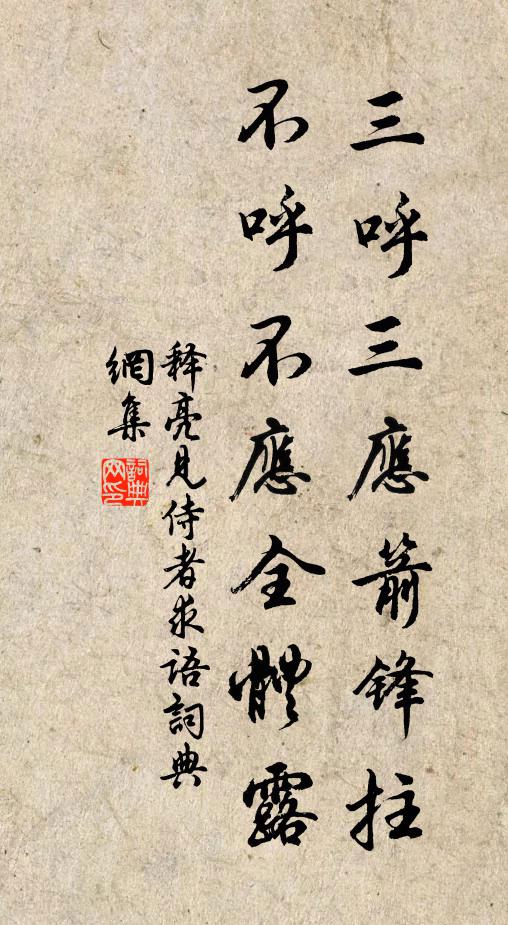 三呼三應箭鋒拄
不呼不應全體露
释亮見侍者求語詞典
網集
詞典網印